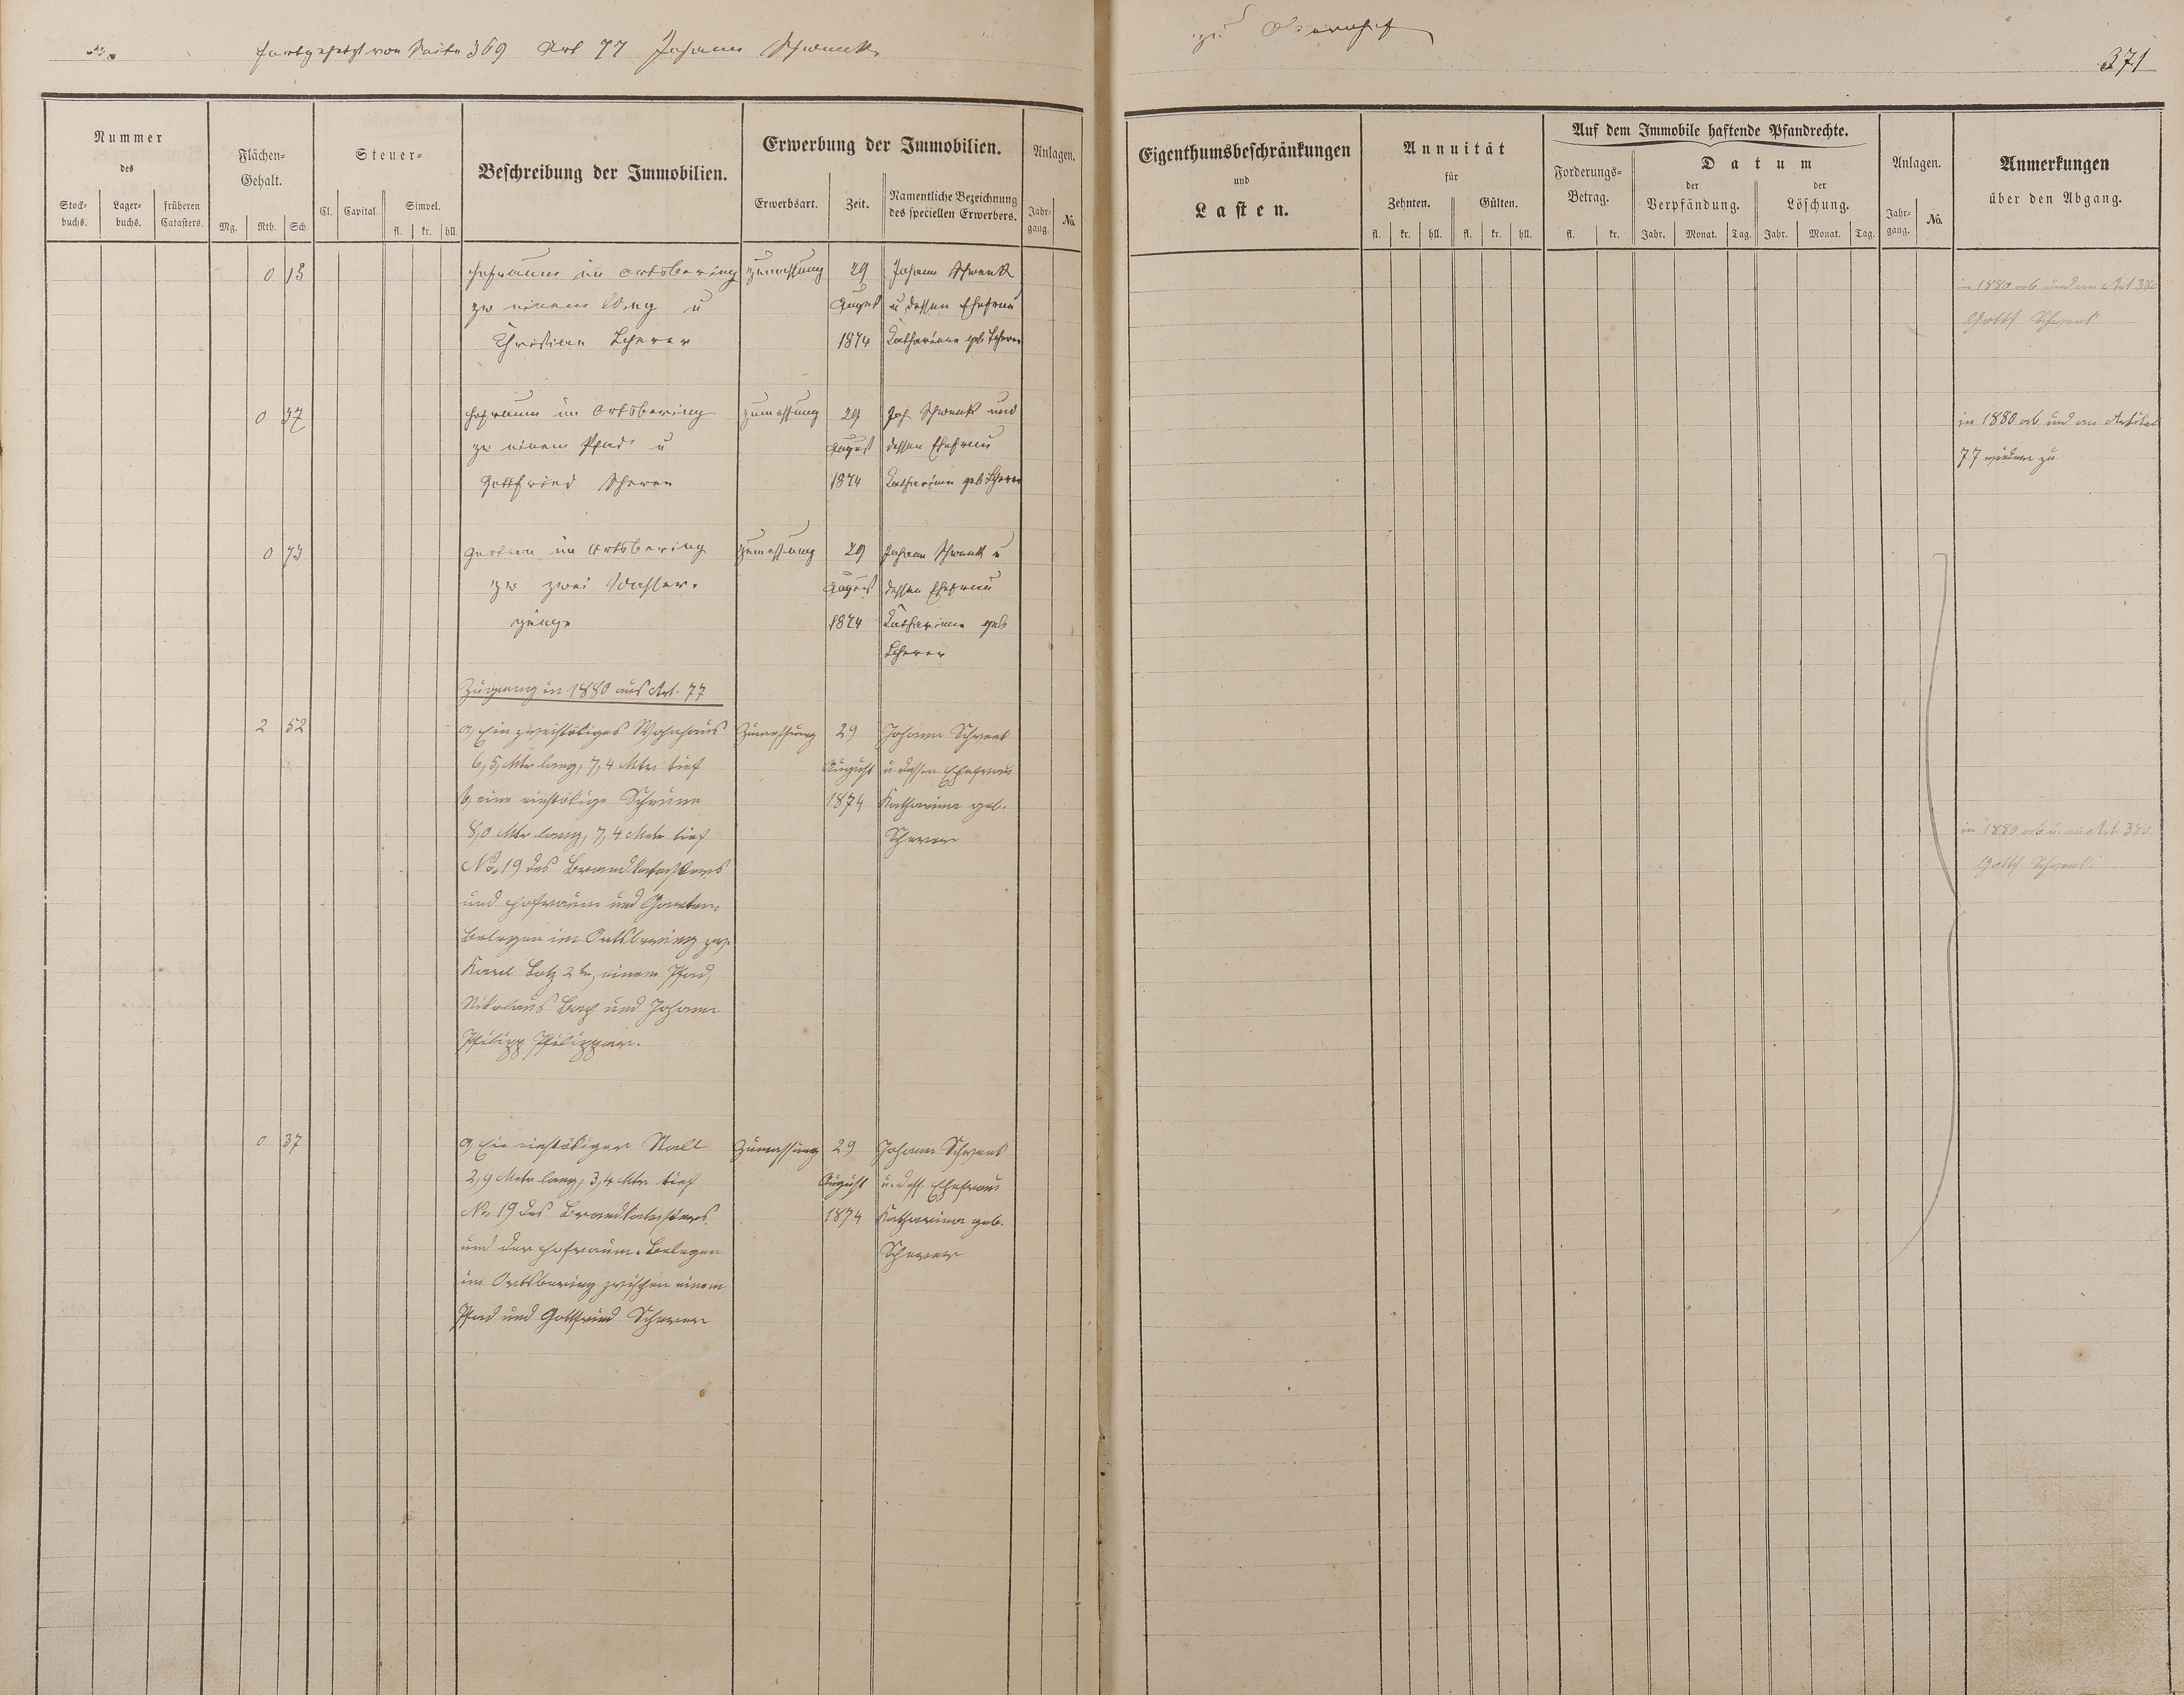 fortgesetzt von Seite 369 Art 77 Johann Schwenk
zu
371
Nummer
des
Stock-
buchs.
Lager-
buchs.
früheren
Catasters.
Flächen-
Gehalt.
Mg.
Rth.
Sch.
Steuer-
Cl.
Capital.
Simpel.
fl.
kr.
hll.
Beschreibung der Immobilien.
Erwerbung der Immobilien.
Erwerbsart.
Zeit.
Namentliche Bezeichnung
des speciellen Erwerbers.
Anlagen.
Jahr-
gang.
No.
Eigenthumsbeschränkungen
und
Lasten.
Annuität
für
Zehnten.
Gülten.
fl.
kr.
hll.
fl.
kr.
hll.
Auf dem Immobile haftende Pfandrechte.
Forderungs-
Betrag.
fl.
kr.
Datum
der
Verpfändung.
Jahr.
Monat.
Tag.
der
Löschung.
Jahr.
Monat.
Tag.
Anlagen.
Jahr-
gang.
No.
Anmerkungen
über den Abgang.
0 13 Hofraum im Ortsbering Zumessung 29 Johann Schwenk
zw einem Weg u August u dessen Ehefrau
Christian Scherer 1874 Katharina geb Scherer
in 1880 ab und an Art 380
Gottf Schwenk
0 37 Hofraum im Ortsbering Zumessung 29 Joh Schwenk und
zw einem Pfad u August dessen Ehefrau
Gottfried Scherer 1874 Katharina geb Scherer
in 1880 ab und an Artikel
77 wieder zu
0 73 Garten im Ortsbering Zumessung 29 Johann Schwenk u
zw zwei Wasser- August dessen Ehefrau
gänge 1874 Katharina geb
Scherer
Zugang in 1880 aus Art. 77
2 52 a, Ein zweistökiges Wohnhaus Zumessung 29 Johann Schwenk
6,5 Mtr lang, 7,4 Mtr tief August u dessen Ehefrau
b, eine einstökige Scheune 1874 Katharina geb.
8,0 Mtr lang, 7,4 Metr tief Scherer
No. 19 des Brandkatasters
und Hofraum und Garten.
Belegen im Ortsbering zw.
Karl 2te, einem Pfad,
Nikolaus und Johann
Philipp
in 1880 ab u. an Art. 380
Gottf Schwenk
0 37 a, Ein einstökiger Stall Zumessung 29 Johann Schwenk
2,9 Metr lang, 3,4 Mtr tief August u. dess. Ehefrau
No. 19 des Brandkatasters 1874 Katharina geb.
und der Hofraum. Belegen Scherer
im Ortsbering zwischen einem
Pfad und Gottfried Scherer